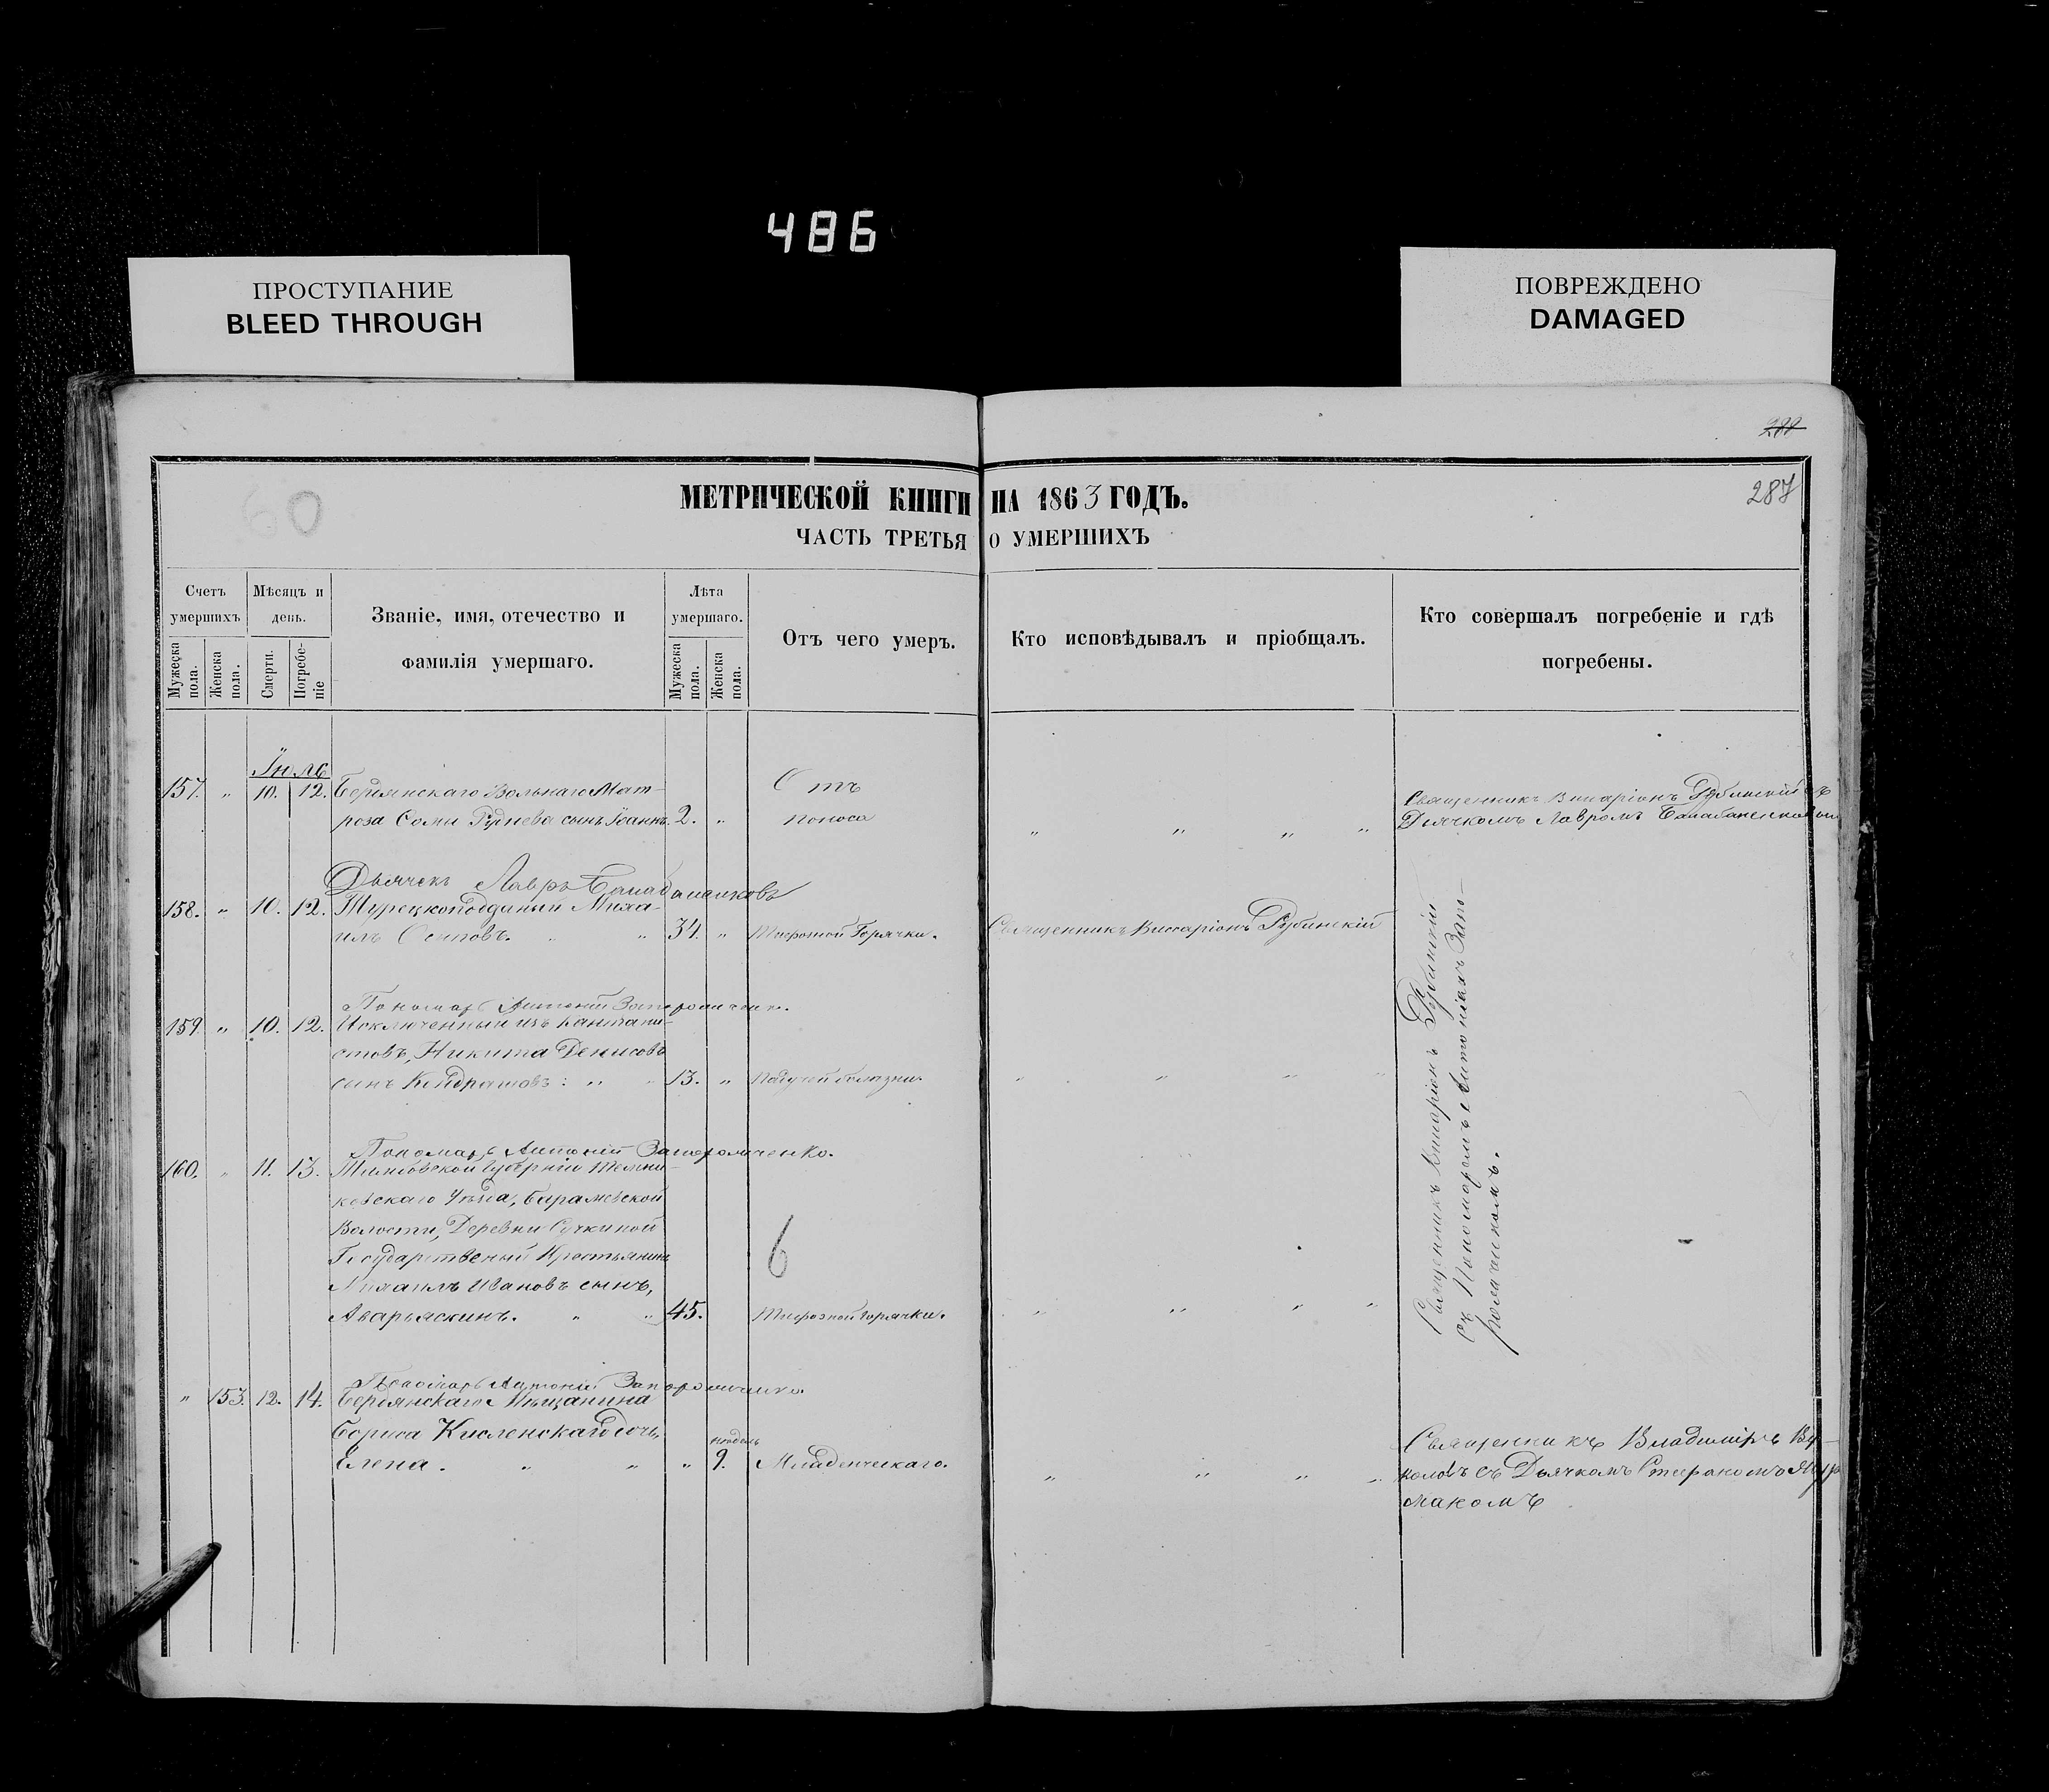 486
ПРОСТУПАНИЕ
BLEED THROUGH
ПОВРЕЖДЕНО
DAMAGED
288
287
60
МЕТРИЧЕСКОЙ КНИГИ НА 1863 ГОДЪ.
ЧАСТЬ ТРЕТЬЯ О УМЕРШИХЪ
Счетъ умершихъ
Мужеска пола.
Женска пола.
Мѣсяцъ и день.
Смерти.
Погребеніе
Званіе, имя, отечество и
фамилія умершаго.
Лѣта умершаго.
Мужеска пола.
Женска пола.
Отъ чего умеръ.
Кто исповѣдывалъ и пріобщалъ.
Кто совершалъ погребеніе и гдѣ
погребены.
Іюль
157. " 10. 12. Бердянскаго Вольнаго Мат-
роза Сомы Руднева сынъ Іоаннъ. 2. "
Отъ
поноса
" " " "
Священникъ Виссаріонъ Рубинскій съ
Дьячкомъ Лавромъ
Дьячекъ Лавръ
158. " 10. 12. Турецкоподданый Миха-
илъ Осиповъ. " " 34. " Тифозной Горячки. Священникъ Виссаріонъ Рубинскій
Пономарь Антоній
159. " 10. 12. Исключенный изъ Кантани-
стовъ, Никита Денисовъ
сынъ Кондрашовъ: " " 13. " Падучей болезни. " " " "
Пономарь Антоній Запорожченко.
160. " 11. 13. Тамбовской Губерніи Темни-
ковскаго Уѣзда,
Волости, Деревни Сучкиной
Государственый Крестьянинъ
Михаилъ Ивановъ сынъ,
Аварьяскинъ. " " 45. Тифозной горячки. " " " "
6
Священникъ Виссаріонъ Рубинскій
съ Пономаремъ Антоніемъ Запо-
рожченкомъ.
Пономарь Антоній Запорожченко.
" 153. 12. 14. Бердянскаго Мѣщанина
Бориса Кисленскаго дочь,
Елена. " " " недѣль 9. Младенческаго. " " " "
Священникъ Владиміръ Ву-
коловъ съ Дьячкомъ Стефаномъ
макомъ